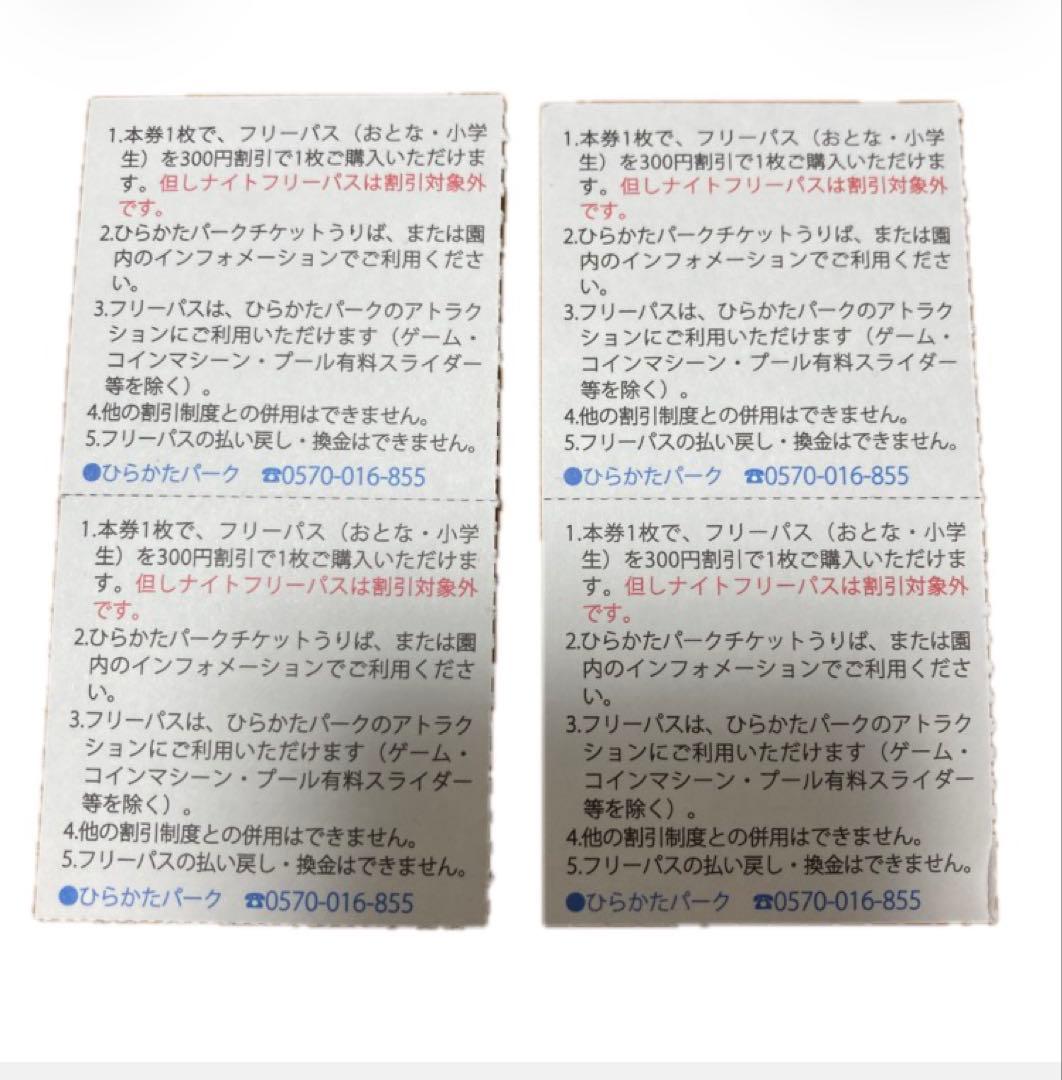 1.本券1枚で、フリーパス（おとな・小学
生）を300円割引で1枚ご購入いただけま
す。但しナイトフリーパスは割引対象外
です。
2.ひらかたパークチケットうりば、または園
内のインフォメーションでご利用くださ
い。
3.フリーパスは、ひらかたパークのアトラク
ションにご利用いただけます（ゲーム・
コインマシーン・プール有料スライダー
等を除く）。
4.他の割引制度との併用はできません。
5.フリーパスの払い戻し・換金はできません。
●ひらかたパーク ☎0570-016-855
1.本券1枚で、フリーパス（おとな・小学
生）を300円割引で1枚ご購入いただけま
す。但しナイトフリーパスは割引対象外
です。
2.ひらかたパークチケットうりば、または園
内のインフォメーションでご利用くださ
い。
3.フリーパスは、ひらかたパークのアトラク
ションにご利用いただけます（ゲーム・
コインマシーン・プール有料スライダー
等を除く）。
4.他の割引制度との併用はできません。
5.フリーパスの払い戻し・換金はできません。
●ひらかたパーク ☎0570-016-855
1.本券1枚で、フリーパス（おとな・小学
生）を300円割引で1枚ご購入いただけま
す。但しナイトフリーパスは割引対象外
です。
2.ひらかたパークチケットうりば、または園
内のインフォメーションでご利用くださ
い。
3.フリーパスは、ひらかたパークのアトラク
ションにご利用いただけます（ゲーム・
コインマシーン・プール有料スライダー
等を除く）。
4.他の割引制度との併用はできません。
5.フリーパスの払い戻し・換金はできません。
●ひらかたパーク ☎0570-016-855
1.本券1枚で、フリーパス（おとな・小学
生）を300円割引で1枚ご購入いただけま
す。但しナイトフリーパスは割引対象外
です。
2.ひらかたパークチケットうりば、または園
内のインフォメーションでご利用くださ
い。
3.フリーパスは、ひらかたパークのアトラク
ションにご利用いただけます（ゲーム・
コインマシーン・プール有料スライダー
等を除く）。
4.他の割引制度との併用はできません。
5.フリーパスの払い戻し・換金はできません。
●ひらかたパーク ☎0570-016-855